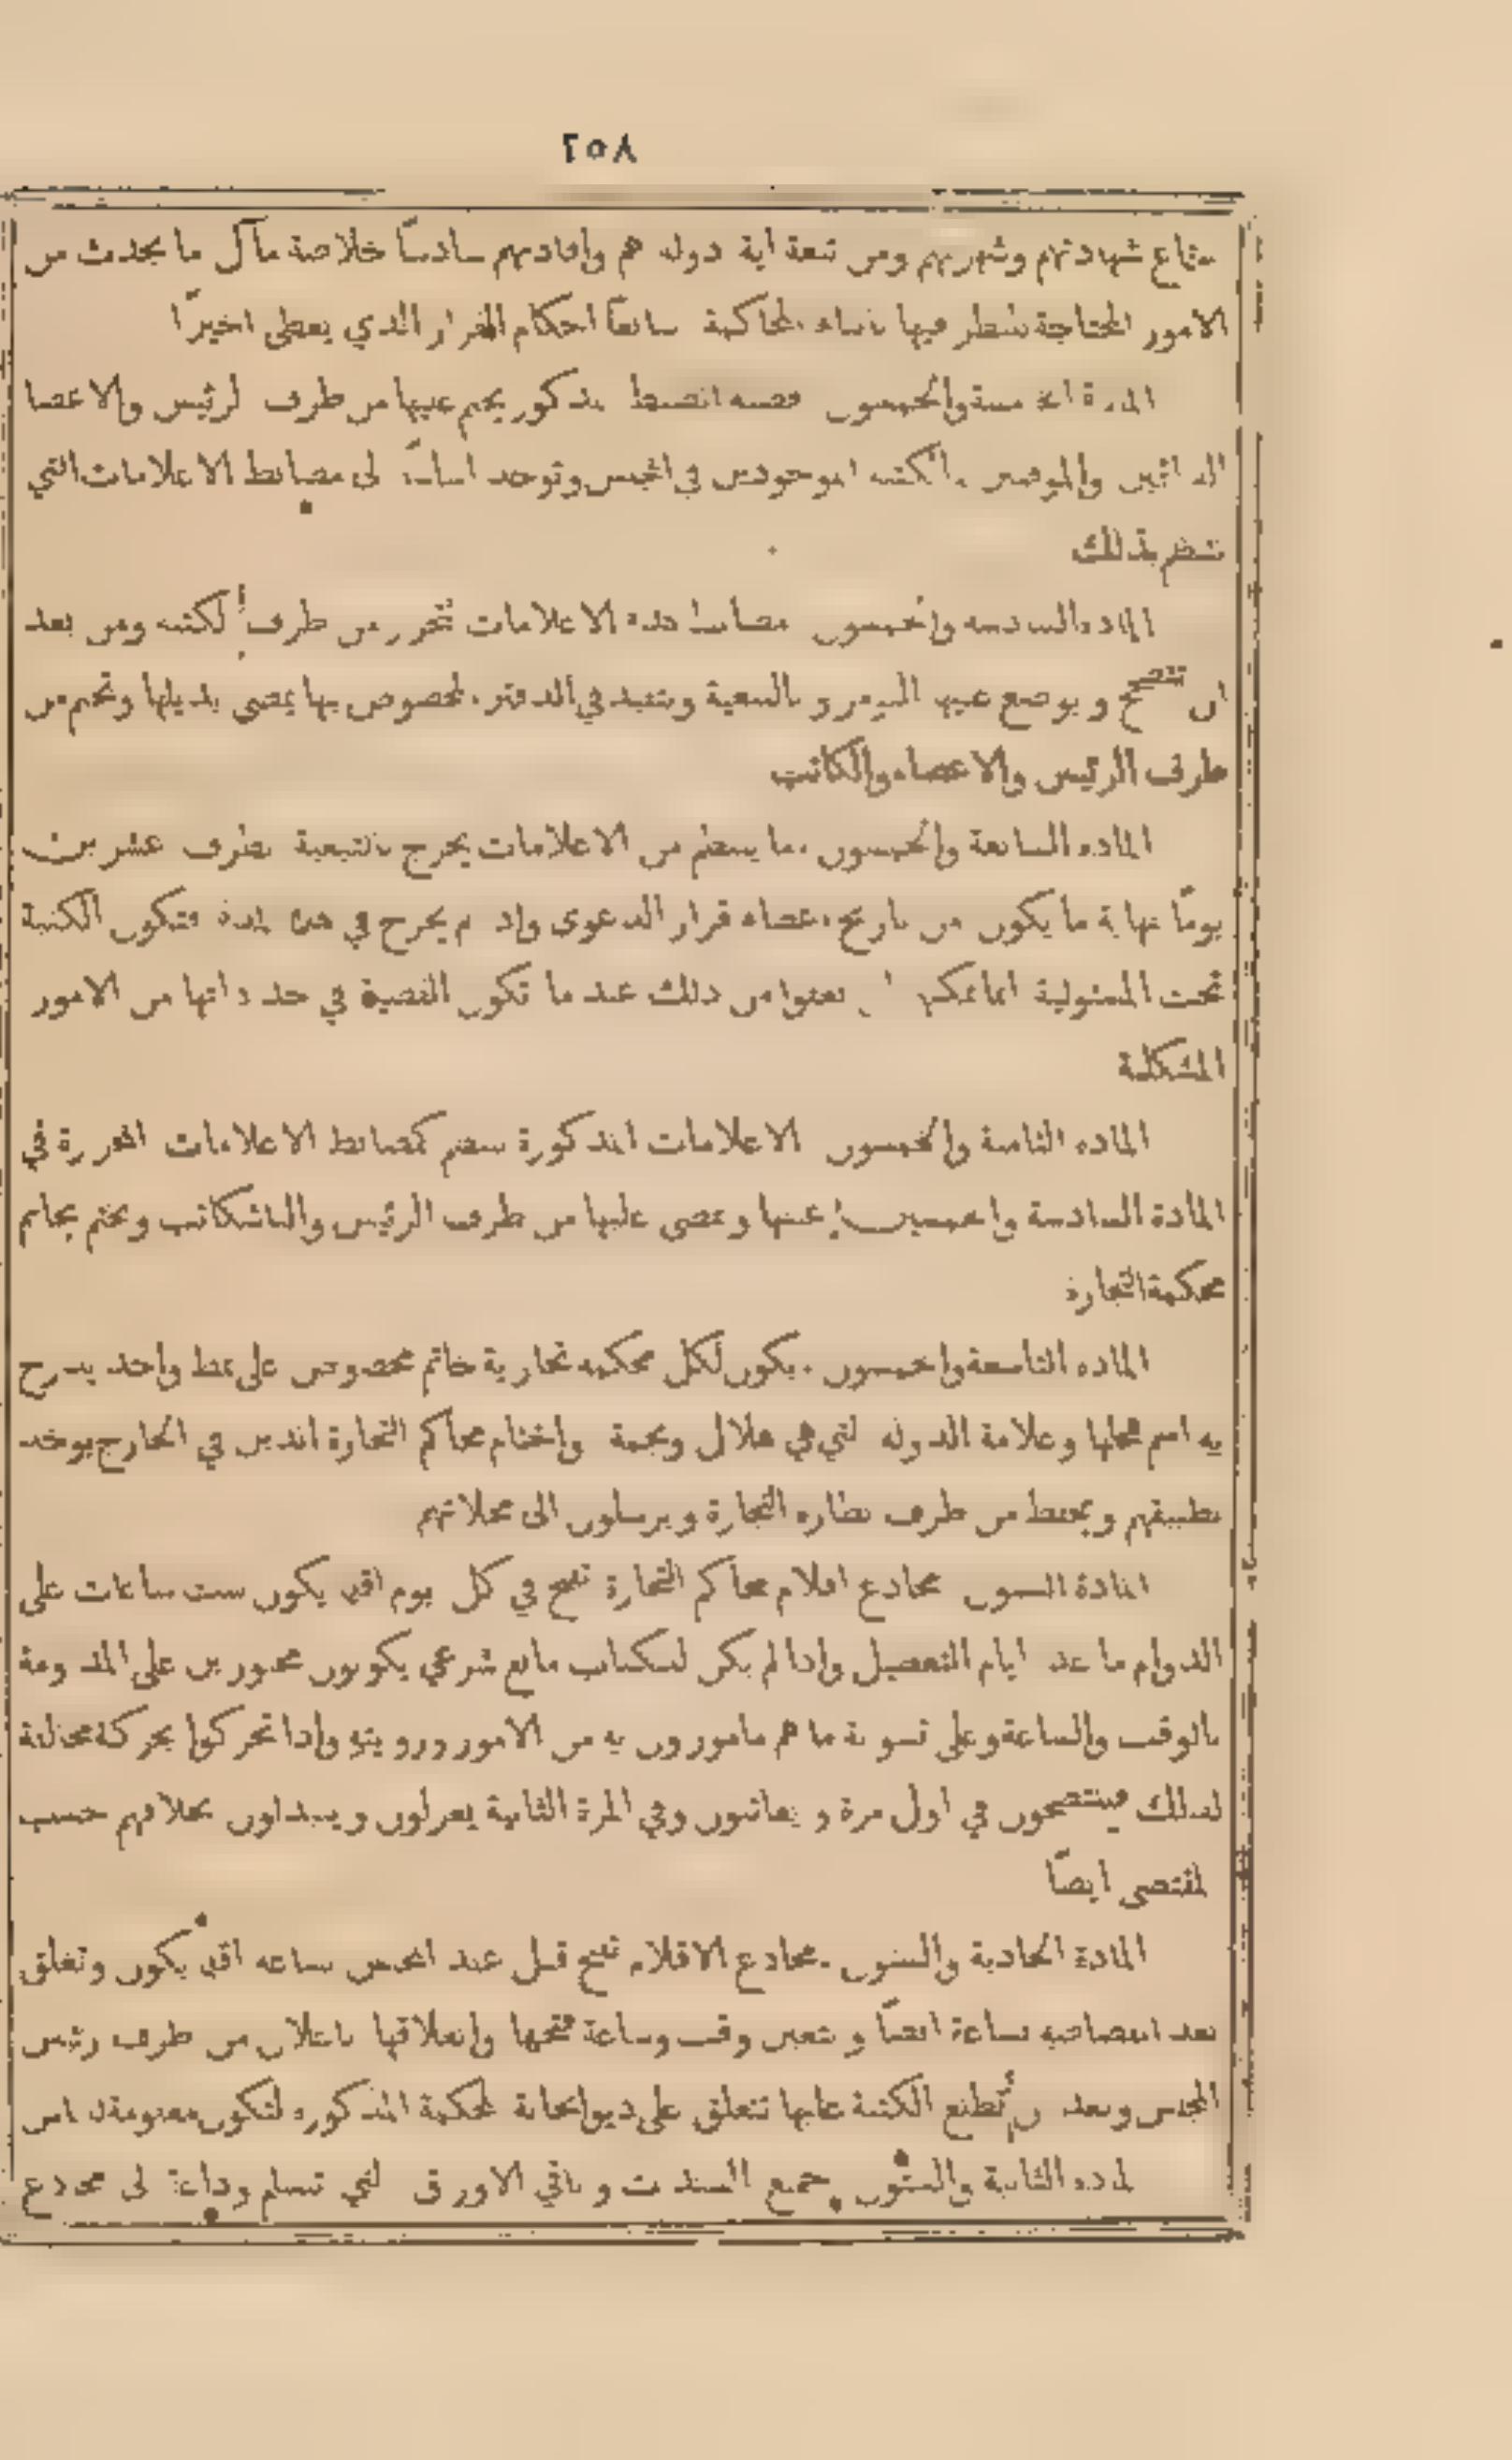 ٨٥٦
شهادتهم وشهرتهم ومن دوله هم وافادتهم سادساً خلاصة مآل ما يحدث من
الامور المحتاجة للنظر فيها المحاكمة سابعاً احكام القرار الذي يعطى اخيراً
والخمسون مذكور يختم عليها من طرف الرئيس والاعضا
الموجودين في المجلس وتوجد الى مضابط الاعلامات التي
تنظم بذلك
المادة السادسه والخمسون مضابط هذه الاعلامات تتحرر من طرف الكتبه ومن بعد
ان تتصحح و يوضع عليها و بالتبعية وتتقيد في الدفتر المخصوص بها يمضى بذيلها وتختم من
طرف الرئيس والاعضاء والكاتب
المادة السابعة والخمسون ما ينتظم من الاعلامات يخرج بالتبعية بظرف عشرين
يوماً نهاية ما يكون من تاريخ اعطاء قرار الدعوى واذا لم يخرج في هذه المدة فتكون الكتبة
تحت المسئولية انما يمكن ان يعفوا من ذلك عند ما تكون القضية في حد ذاتها من الامور
المشكلة
المادة الثامنة والخمسون الاعلامات المذكورة كمضابط الاعلامات المحررة في
المادة السادسة والخمسين عينها ويمضى عليها من طرف الرئيس والباشكاتب ويختم بخاتم
محكمة التجارة
المادة التاسعة والخمسون يكون لكل محكمه تجارية خاتم مخصوص على نمط واحد
به اسم محلها وعلامة الدوله التي هي هلال ونجمة واختام محاكم التجارة الذين في الخارج يوخذ
تطبيقهم ويحفظ من طرف نظارة التجارة ويرسلون الى محلاتهم
المادة الستون مخادع اقلام محاكم التجارة تفتح في كل يوم اقله يكون ست ساعات على
الدوام ما عدا ايام التعطيل واذا لم يكن للكتاب مانع شرعي يكونون مجبورين على المداومة
بالوقت والساعة وعلى تسوية ما هم مامورون به من الامور ورويته واذا تحركوا بحركة مخالفة
لذلك فيتنصحون في اول مرة و يعاتبون وفي المرة الثانية يعزلون ويبدلون بخلافهم حسب
المقتضى ايضاً
المادة الحادية والستون مخادع الاقلام تفتح قبل عقد المجلس بساعه اقله يكون وتغلق
بعد بساعة ايضاً و يتعين وقت وساعة فتحها وانغلاقها باعلان من طرف رئيس
المجلس وبعد ان تطلع الكتبة عليها تتعلق على ديوانخانة المحكمة المذكورة لتكون معلومة
المادة الثانية والستون جميع السندات و باقي الاوراق التي تسلم وداعة الى مخادع